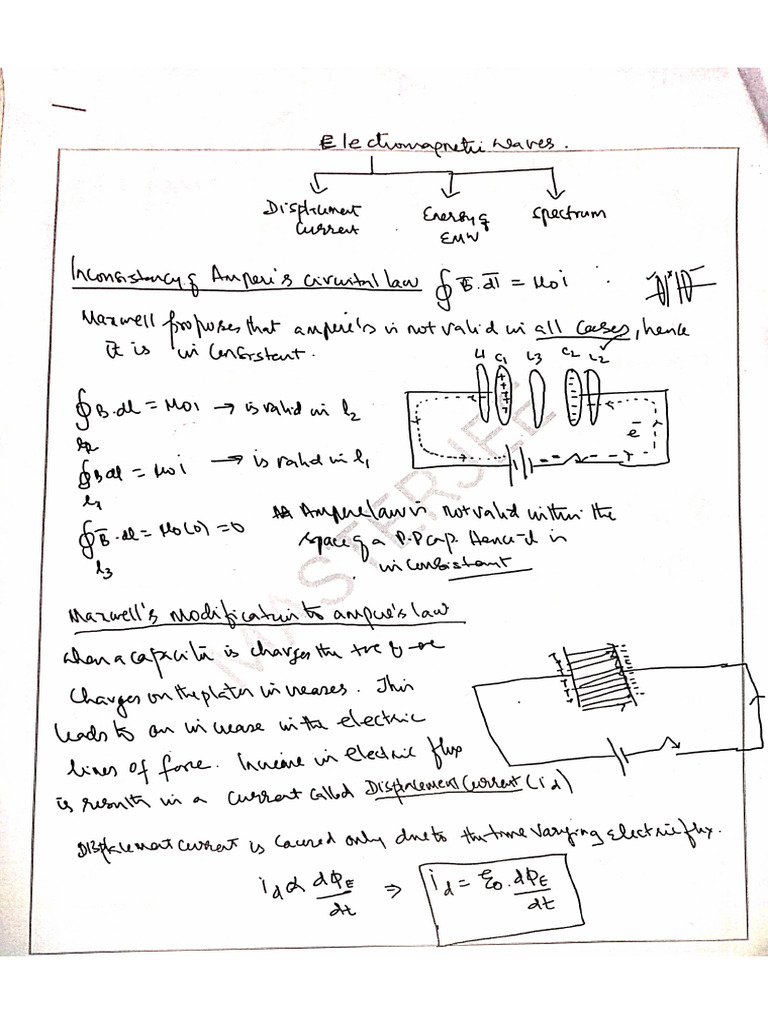 Electromagnetic waves.
Displacement Current
Energy of EMW
Spectrum
Inconsistancy of Ampere's circuital law ∮ B̅.dl̅ = μ0 i
Maxwell proposes that ampere's is not valid in all cases, hence
it is inconsistant.
L1 C1 L3 C2 L2
∮ B.dl = μ0 i → is valid in l2
l2
∮ B dl = μ0 i → is valid in l1
l1
e⁻
∮ B̅.dl = μ0(0) = 0
l3
Ampere law is not valid within the
space of a P.P cap. Hence it is
inconsistant
MASTERJEE
Maxwell's modification to ampere's law
when a capacitor is charges the +ve & -ve
charges on the plates increases. This
leads to an increase in the electric
lines of force. Increase in electric flux
is results in a current called Displacement Current (id)
Displacement current is caused only due to the time varying electric flux.
id α dφE/dt ⇒ id = ε0 . dφE/dt